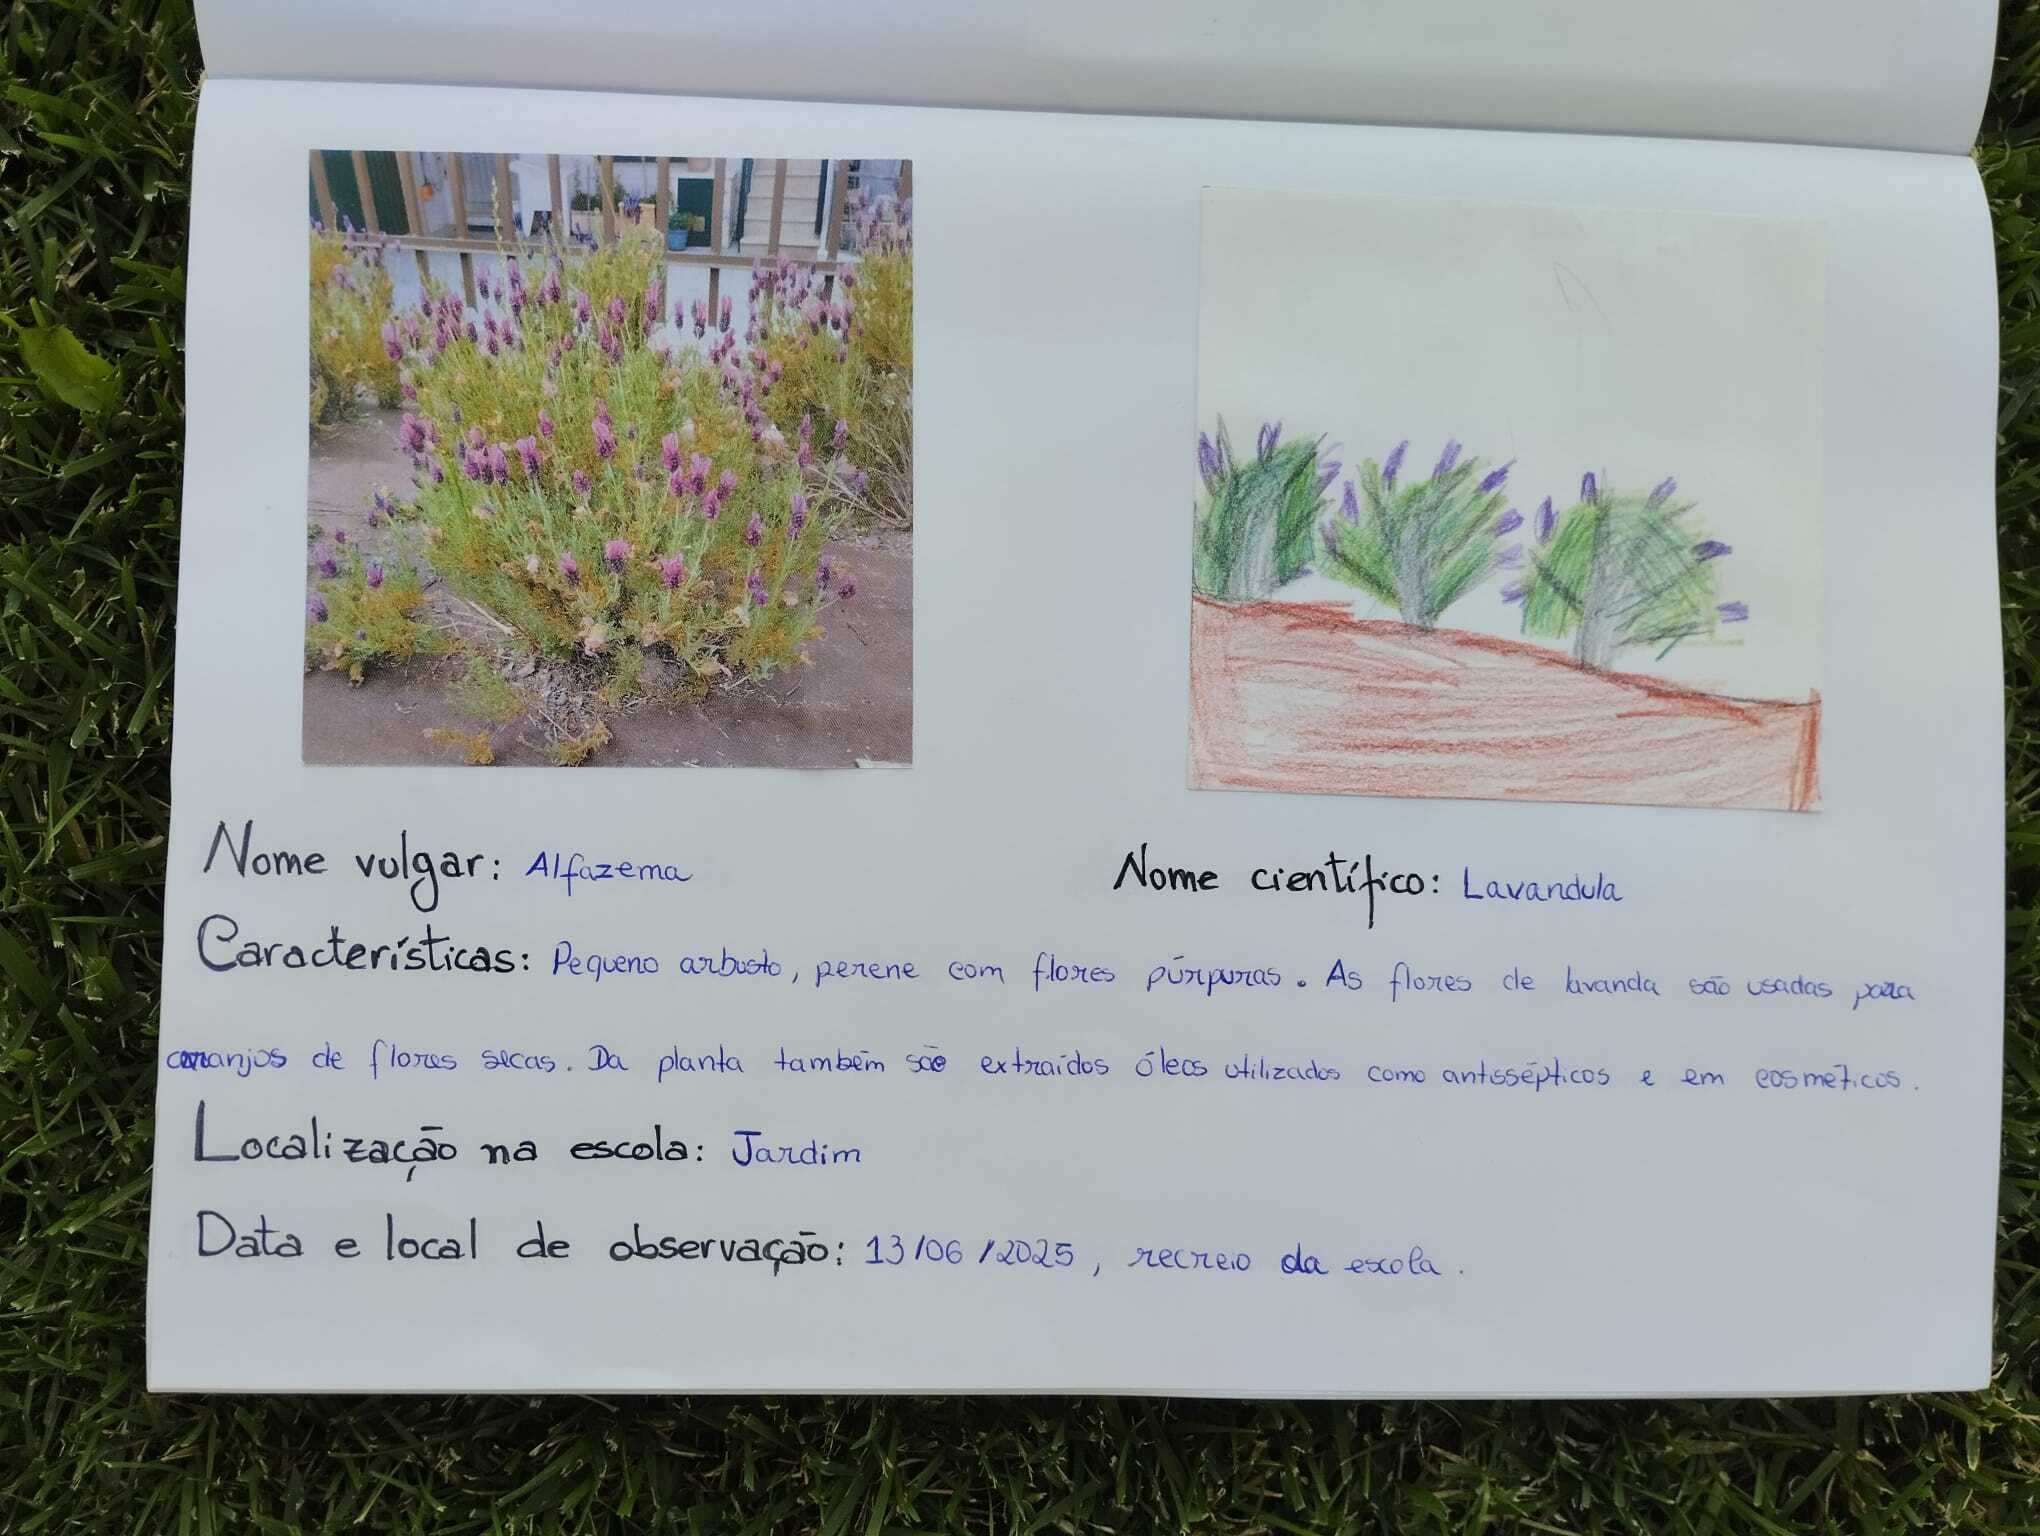 Nome vulgar: Alfazema
Nome científico: Lavandula
Características: Pequeno arbusto, perene com flores púrpuras. As flores de lavanda são usadas para
arranjos de flores secas. Da planta também são extraídos óleos utilizados como antissépticos e em cosméticos.
Localização na escola: Jardim
Data e local de observação: 13/06/2025, recreio da escola.